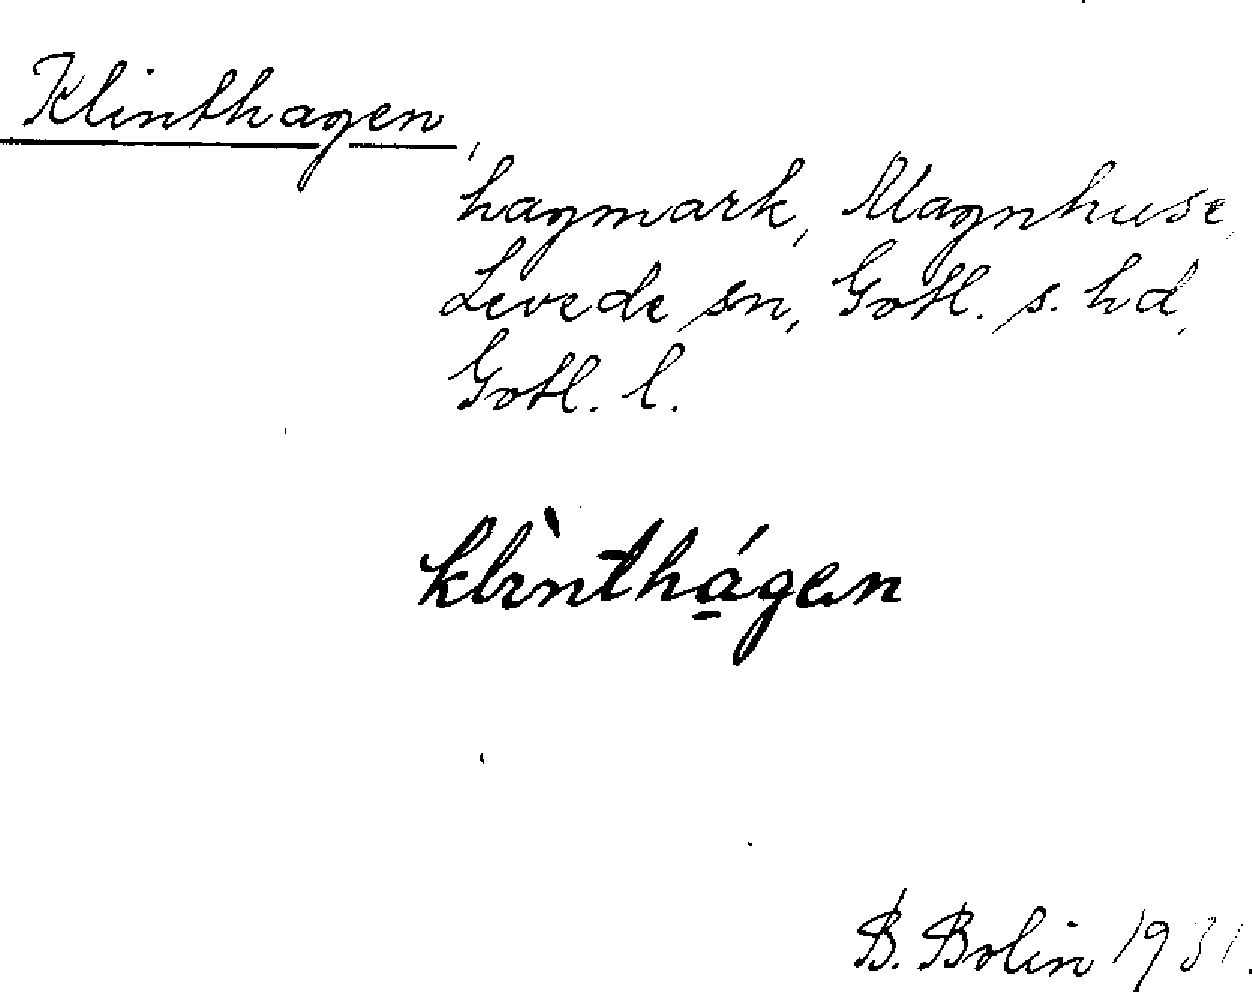 Klinthagen,
hagmark, Magnhuse,
Levede sn, Gotl. s. hd,
Gotl. l.
klìnthá̱gen
B. Bolin 1931.